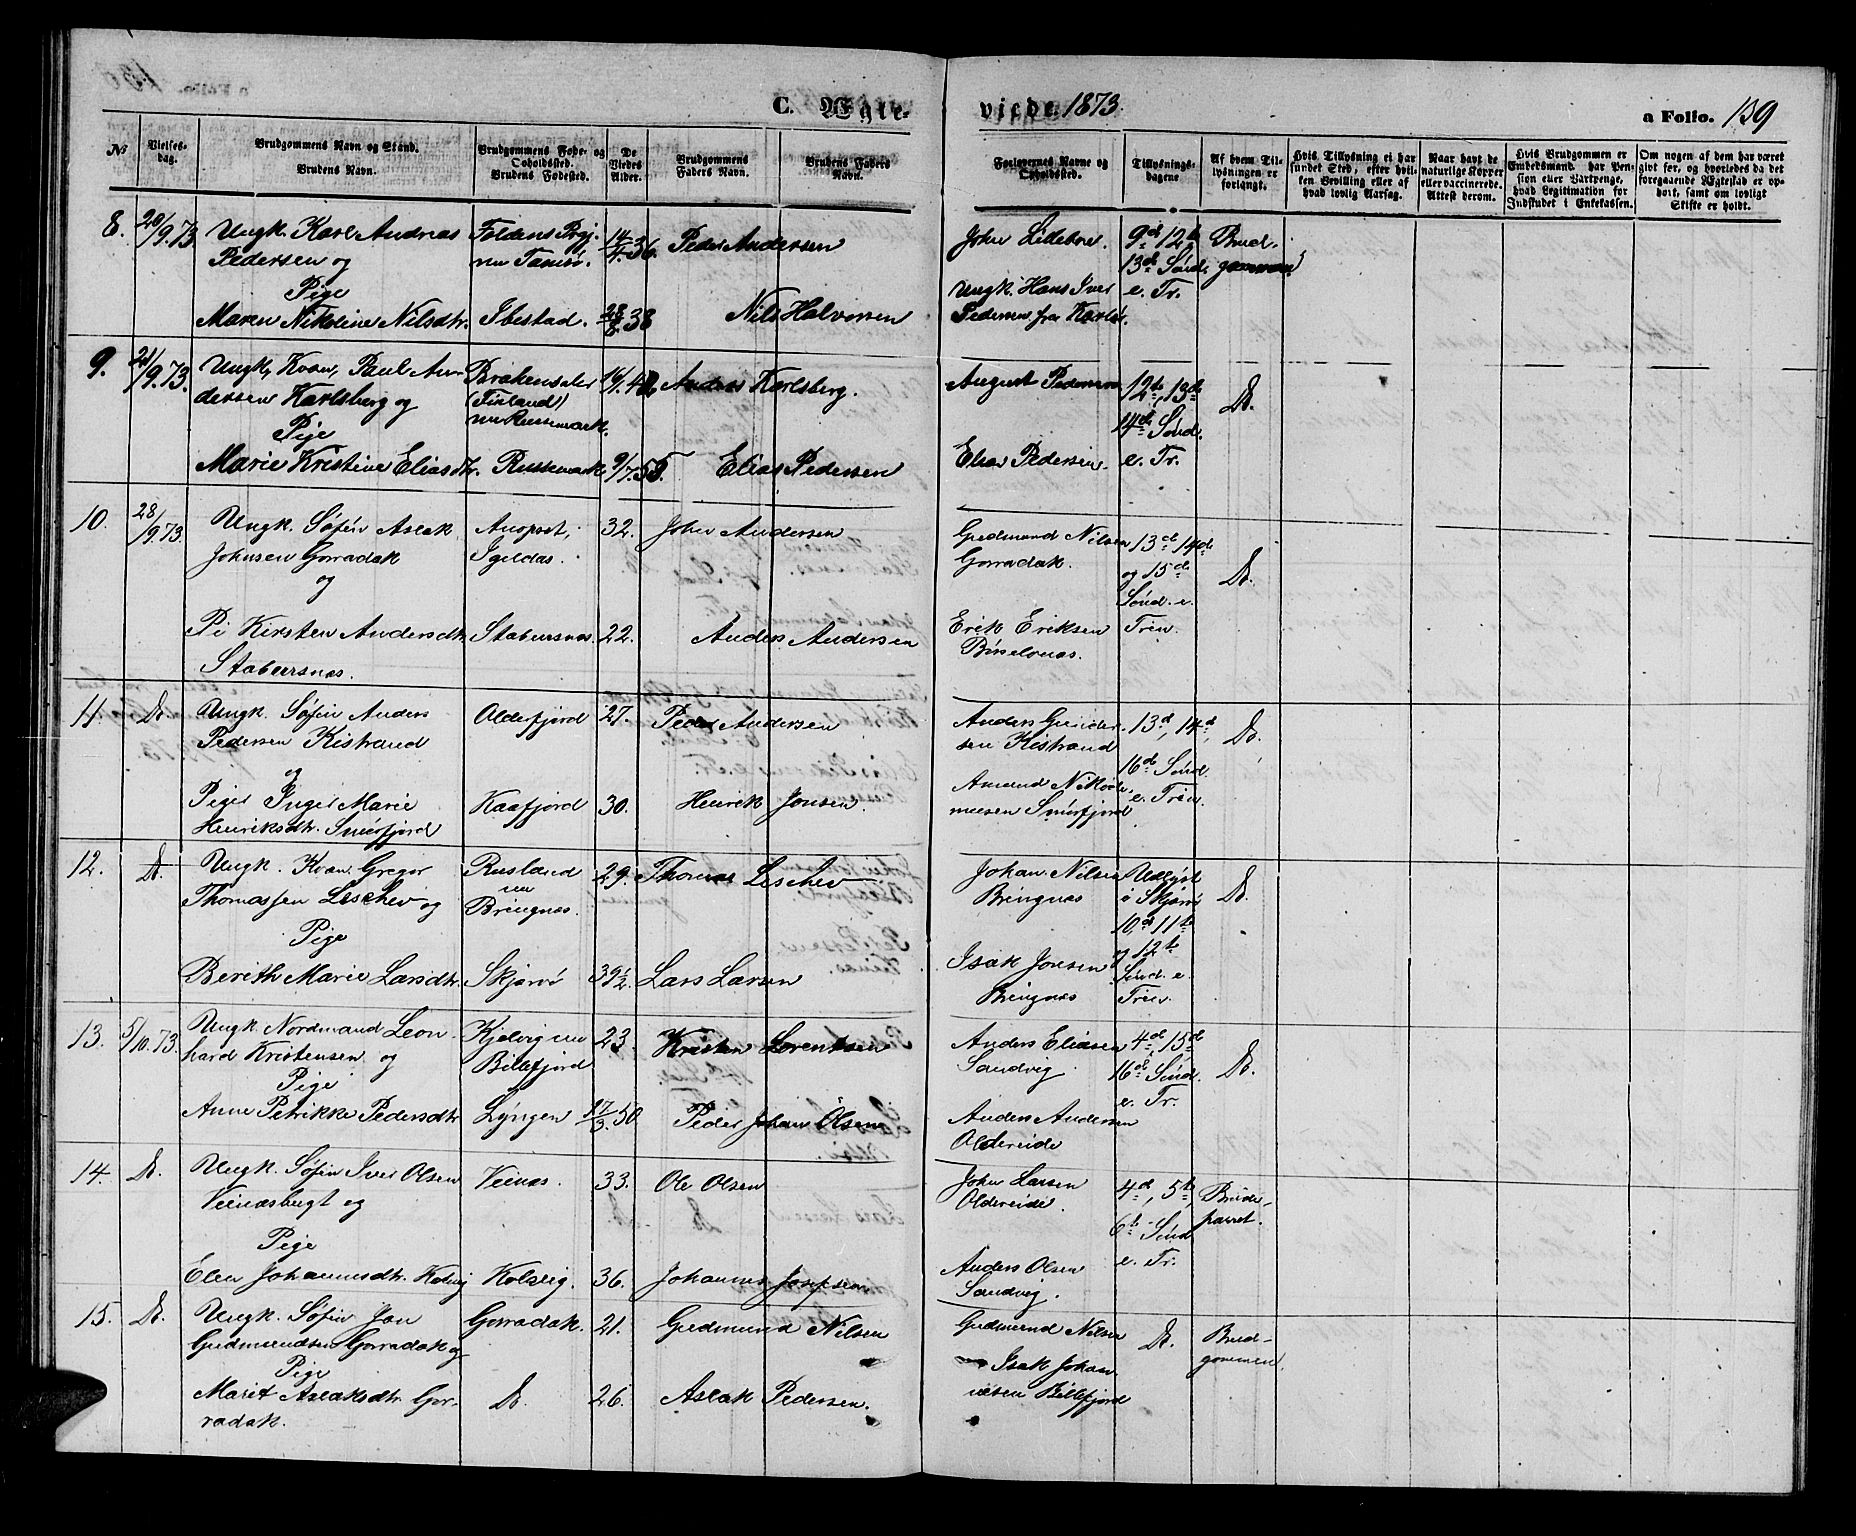 C. Ægte-
viede. 1873.
a Folio. 139
№
Vielses-
dag.
Brudgommens Navn og Stand.
Brudens Navn.
Brudgommens Føde- og
Opholdssted.
Brudens Fødested.
De
Viedes
Alder.
Brudgommens
Faders Navn.
Brudens Faders
Navn.
Forlovernes Navne og
Opholdssted.
Tillysnings-
dagene
Af hvem Til-
lysningen er
forlangt.
Hvis Tillysning ei har
fundet Sted, efter hvil-
ken Bevilling eller af
hvad lovlig Aarsag.
Naar havt de
naturlige Kopper
eller vaccinerede.
Attest derom.
Hvis Brudgommen er
Embedsmand, har Pen-
sion eller Vartpenge,
hvad Legitimation for
Indskudet i Enkekassen.
Om nogen af dem har været
givt før, og hvorledes da det
foregaaende Ægteskab er op-
hørt, samt om lovligt
Skifte er holdt.
8. 20/9.73 Ungk. Karl Andreas Foldens Prgj. 14/4.36. Peder Andersen John Lilleboe. 9d 12te Brud-
Pedersen og nu Tamsø. 13de Sønd. gommen
Pige Ungk. Hans Iver e. Tr.
Maren Nikoline Nilsdtr. Ibestad. 38 Nils Halvorsen Pedersen fra Karlsø.
9. 21/9.73. Ungk, Kvæn, Paul An- 16/1.42 Anders Karlsberg. August Pedersen 12te, 13de Do.
dersen Karlsberg og (Finland)
Pige nu Russemark. 14de Sønd.
Marie Kristine Eliasdtr. Russemark 9/7.55. Elias Pedersen Elias Pedersen. e. Tr.
10. 28/9.73. Ungk. Søfin Aslak 32. John Andersen Gudmund Nilsen 13de 14de Do.
Johnsen Gorradak Igeldas. Gorradak. og 15de
og Sønd. e.
Pi Kirsten Andersdtr. Stabursnæs. 22. Anders Andersen Erik Eriksen Trin.
Stabursnæs. Børselvnæs.
11. Do. Ungk. Søfin Anders Olderfjord 27. Peder Andersen Anders Gunder- 13d, 14d, Do.
Pedersen Kistrand sen Kistrand
og 16de Sønd.
Pigen Inger Marie Kaafjord 30. Henrik Jonsen. Amund Nikode- e. Trin.
Henriksdtr. Smørfjord musen Smørfjord
12. Do. Ungk. Kvæn. Gregor Rusland 29. Thomas Leschev Johan Nilsen Udlyst Do.
Thomassen Leschev og nu Bringnæs. Bringnæs i Skjærvø
Pige 10d, 11te
Berith Marie Larsdtr. Skjærvø 39½ Lars Larsen Isak Jonsen og 12te
Bringnæs Sønd. e.
Trin.
13. 5/10.73. Ungk. Nordmand Leon- Kjelvig nu 23. Kristen Lorentsen Anders Eliasen 4d, 15de Do.
hard Kristensen og Billefjord Sandvig. 16de Sønd.
Pige e. Tr.
Anne Petrikke Pedersdtr. Lyngen 27/3.50 Peder Johan Olsen Anders Andersen
Oldereide
14. Do. Ungk. Søfin Iver Olsen Veinæs. 33. Ole Olsen John Larsen 4d, 5te, Brude-
Veinæsbugt og Oldereide. 6te Sønd. parret.
Pige e. Tr.
Elen Johannesdtr. Kolvig Kolvig. 36. Johannes Josefsen Anders Olsen
Sandvig.
15. Do. Ungk. Søfin Jon Gorradak. 21. Gudmund Nilsen Gudmund Nilsen Do. Brud-
Gudmundsen Gorradak og Isak Johan- gommen.
Pige nesen Billefjord
Marit Aslaksdtr. Gor- Do. 26. Aslak Pedersen.
radak.